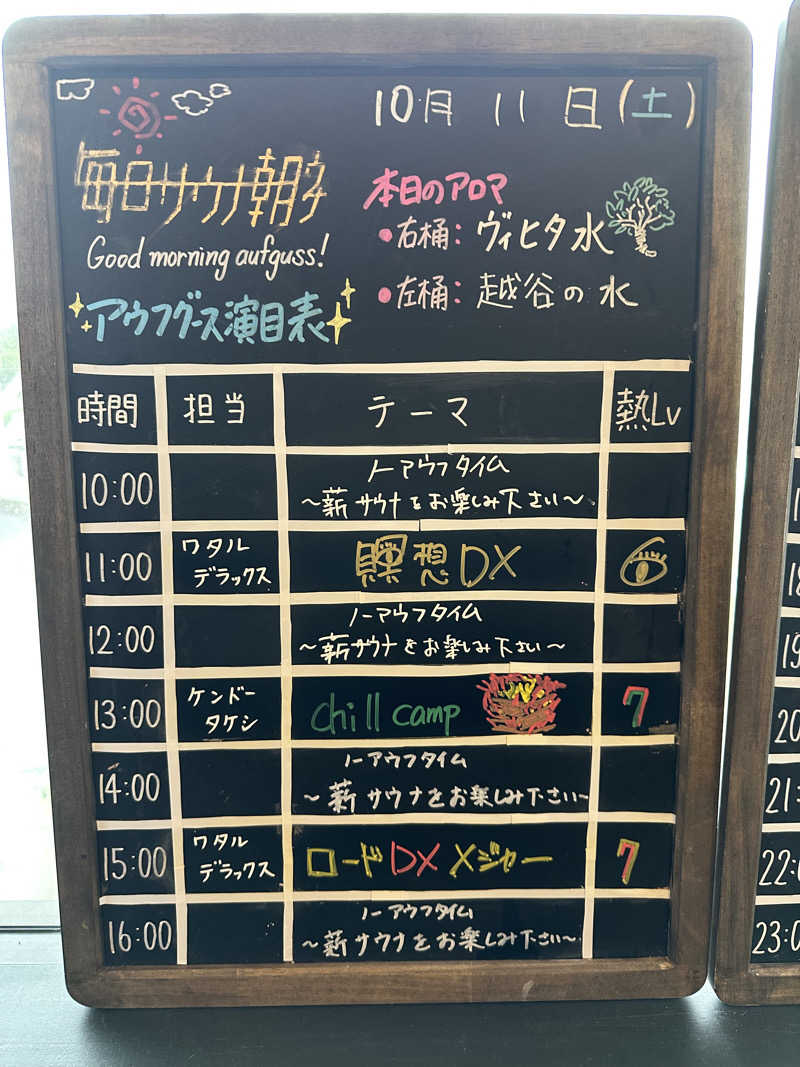 10月 11日(土)
毎日サウナ朝
Good morning aufguss!
アウフグース演目表
本日のアロマ
・右桶: ヴィヒタ水
・左桶: 越谷の水
時間 担当 テーマ 熱Lv
10:00 ノーアウフタイム
〜薪サウナをお楽しみ下さい〜
11:00 ワタル
デラックス 瞑想DX 6
12:00 ノーアウフタイム
〜薪サウナをお楽しみ下さい〜
13:00 ケンドー
タケシ chill camp 7
14:00 ノーアウフタイム
〜薪サウナをお楽しみ下さい〜
15:00 ワタル
デラックス ロードDXメジャー 7
16:00 ノーアウフタイム
〜薪サウナをお楽しみ下さい〜
19
20
21:
22:0
23:0